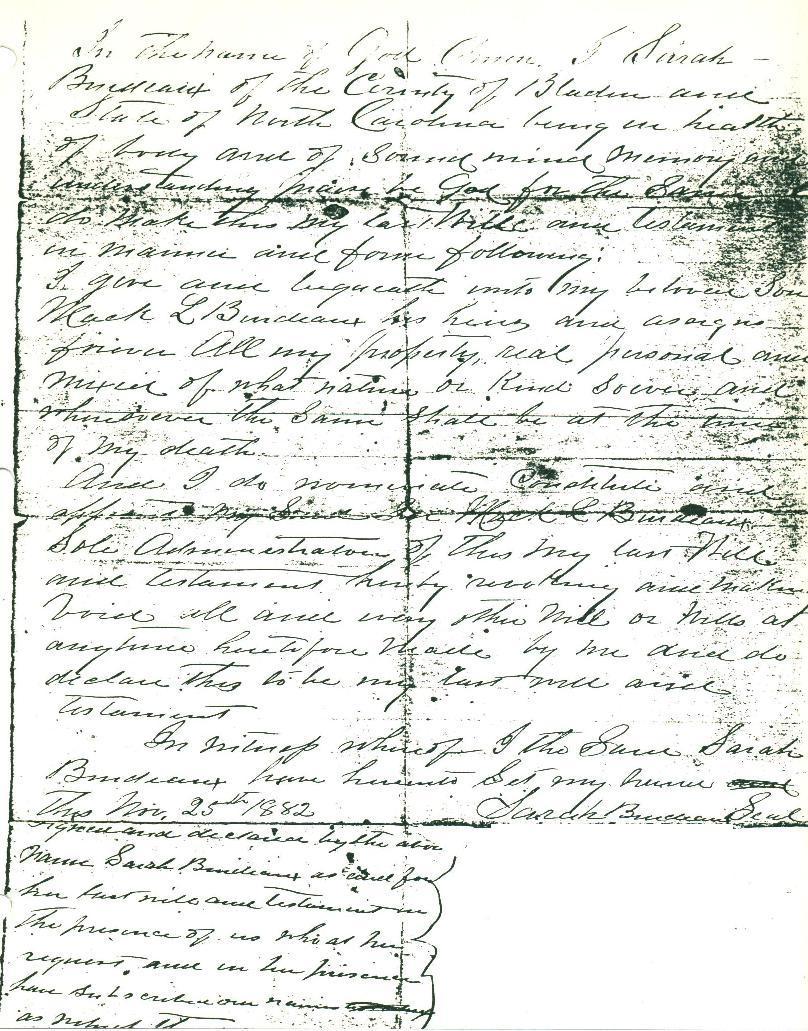 In the name of God Amen. I Sarah
Burdeaux of the County of Bladen and
State of North Carolina being in health
of body and of sound mind memory and
understanding praise be God for the same
do make this my last Will and testament
in manner and form following:
I give and bequeath unto my beloved Son
Mack L Burdeaux his heirs and assigns
forever All my property, real personal and
mixed of what nature or Kind soever and
wheresoever the same shall be at the time
of my death.
And I do nominate Constitute and
appoint my Said Son Mack L Burdeaux
Sole Administrator of this my last Will
and testament hereby revoking and making
Void all and every other Will or Wills at
anytime heretofore Made by me and do
declare this to be my last will and
testament
In witness whereof I the Same Sarah
Burdeaux have hereunto Set my hand
This Nov. 25th 1882 Sarah Burdeaux Seal
Signed and declared by the above
name Sarah Burdeaux as and for
her last will and testament in
the presence of us who at her
request and in her presence
have subscribed our names
as witness